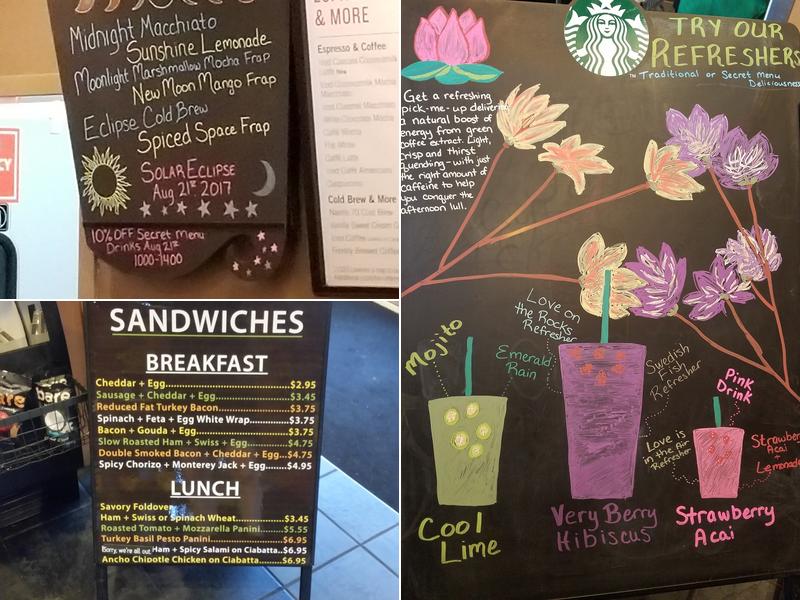 Midnight Macchiato
Sunshine Lemonade
Moonlight Marshmallow Mocha Frap
New Moon Mango Frap
Eclipse Cold Brew
Spiced Space Frap
SOLAR ECLIPSE
Aug 21st 2017
10% OFF Secret Menu
Drinks Aug 21st
1000-1400
& MORE
Espresso & Coffee
Caffè Mocha
Flat White
Caffè Latte
Cappuccino
Cold Brew & More
TRY OUR
REFRESHERS
™ Traditional or Secret Menu
Deliciousness
Get a refreshing
pick-me-up delivering
a natural boost of
energy from green
coffee extract. Light,
crisp and thirst
quenching - with just
the right amount of
caffeine to help
you conquer the
afternoon lull.
Love on
the Rocks
Refresher
Mojito
Emerald
Rain
Swedish
Fish
Refresher
Pink
Drink
Love is
in the Air
Refresher
Strawberry
Acai
+
Lemonade
Cool
Lime
Very Berry
Hibiscus
Strawberry
Acai
SANDWICHES
BREAKFAST
Cheddar + Egg $2.95
Sausage + Cheddar + Egg $3.45
Reduced Fat Turkey Bacon $3.75
Spinach + Feta + Egg White Wrap $3.75
Bacon + Gouda + Egg $3.75
Slow Roasted Ham + Swiss + Egg $4.75
Double Smoked Bacon + Cheddar + Egg $4.75
Spicy Chorizo + Monterey Jack + Egg $4.95
LUNCH
Savory Foldover
Ham + Swiss or Spinach Wheat $3.45
Roasted Tomato + Mozzarella Panini $5.55
Turkey Basil Pesto Panini $6.95
Sorry, we're all out. Ham + Spicy Salami on Ciabatta $6.95
Ancho Chipotle Chicken on Ciabatta $6.95
bare